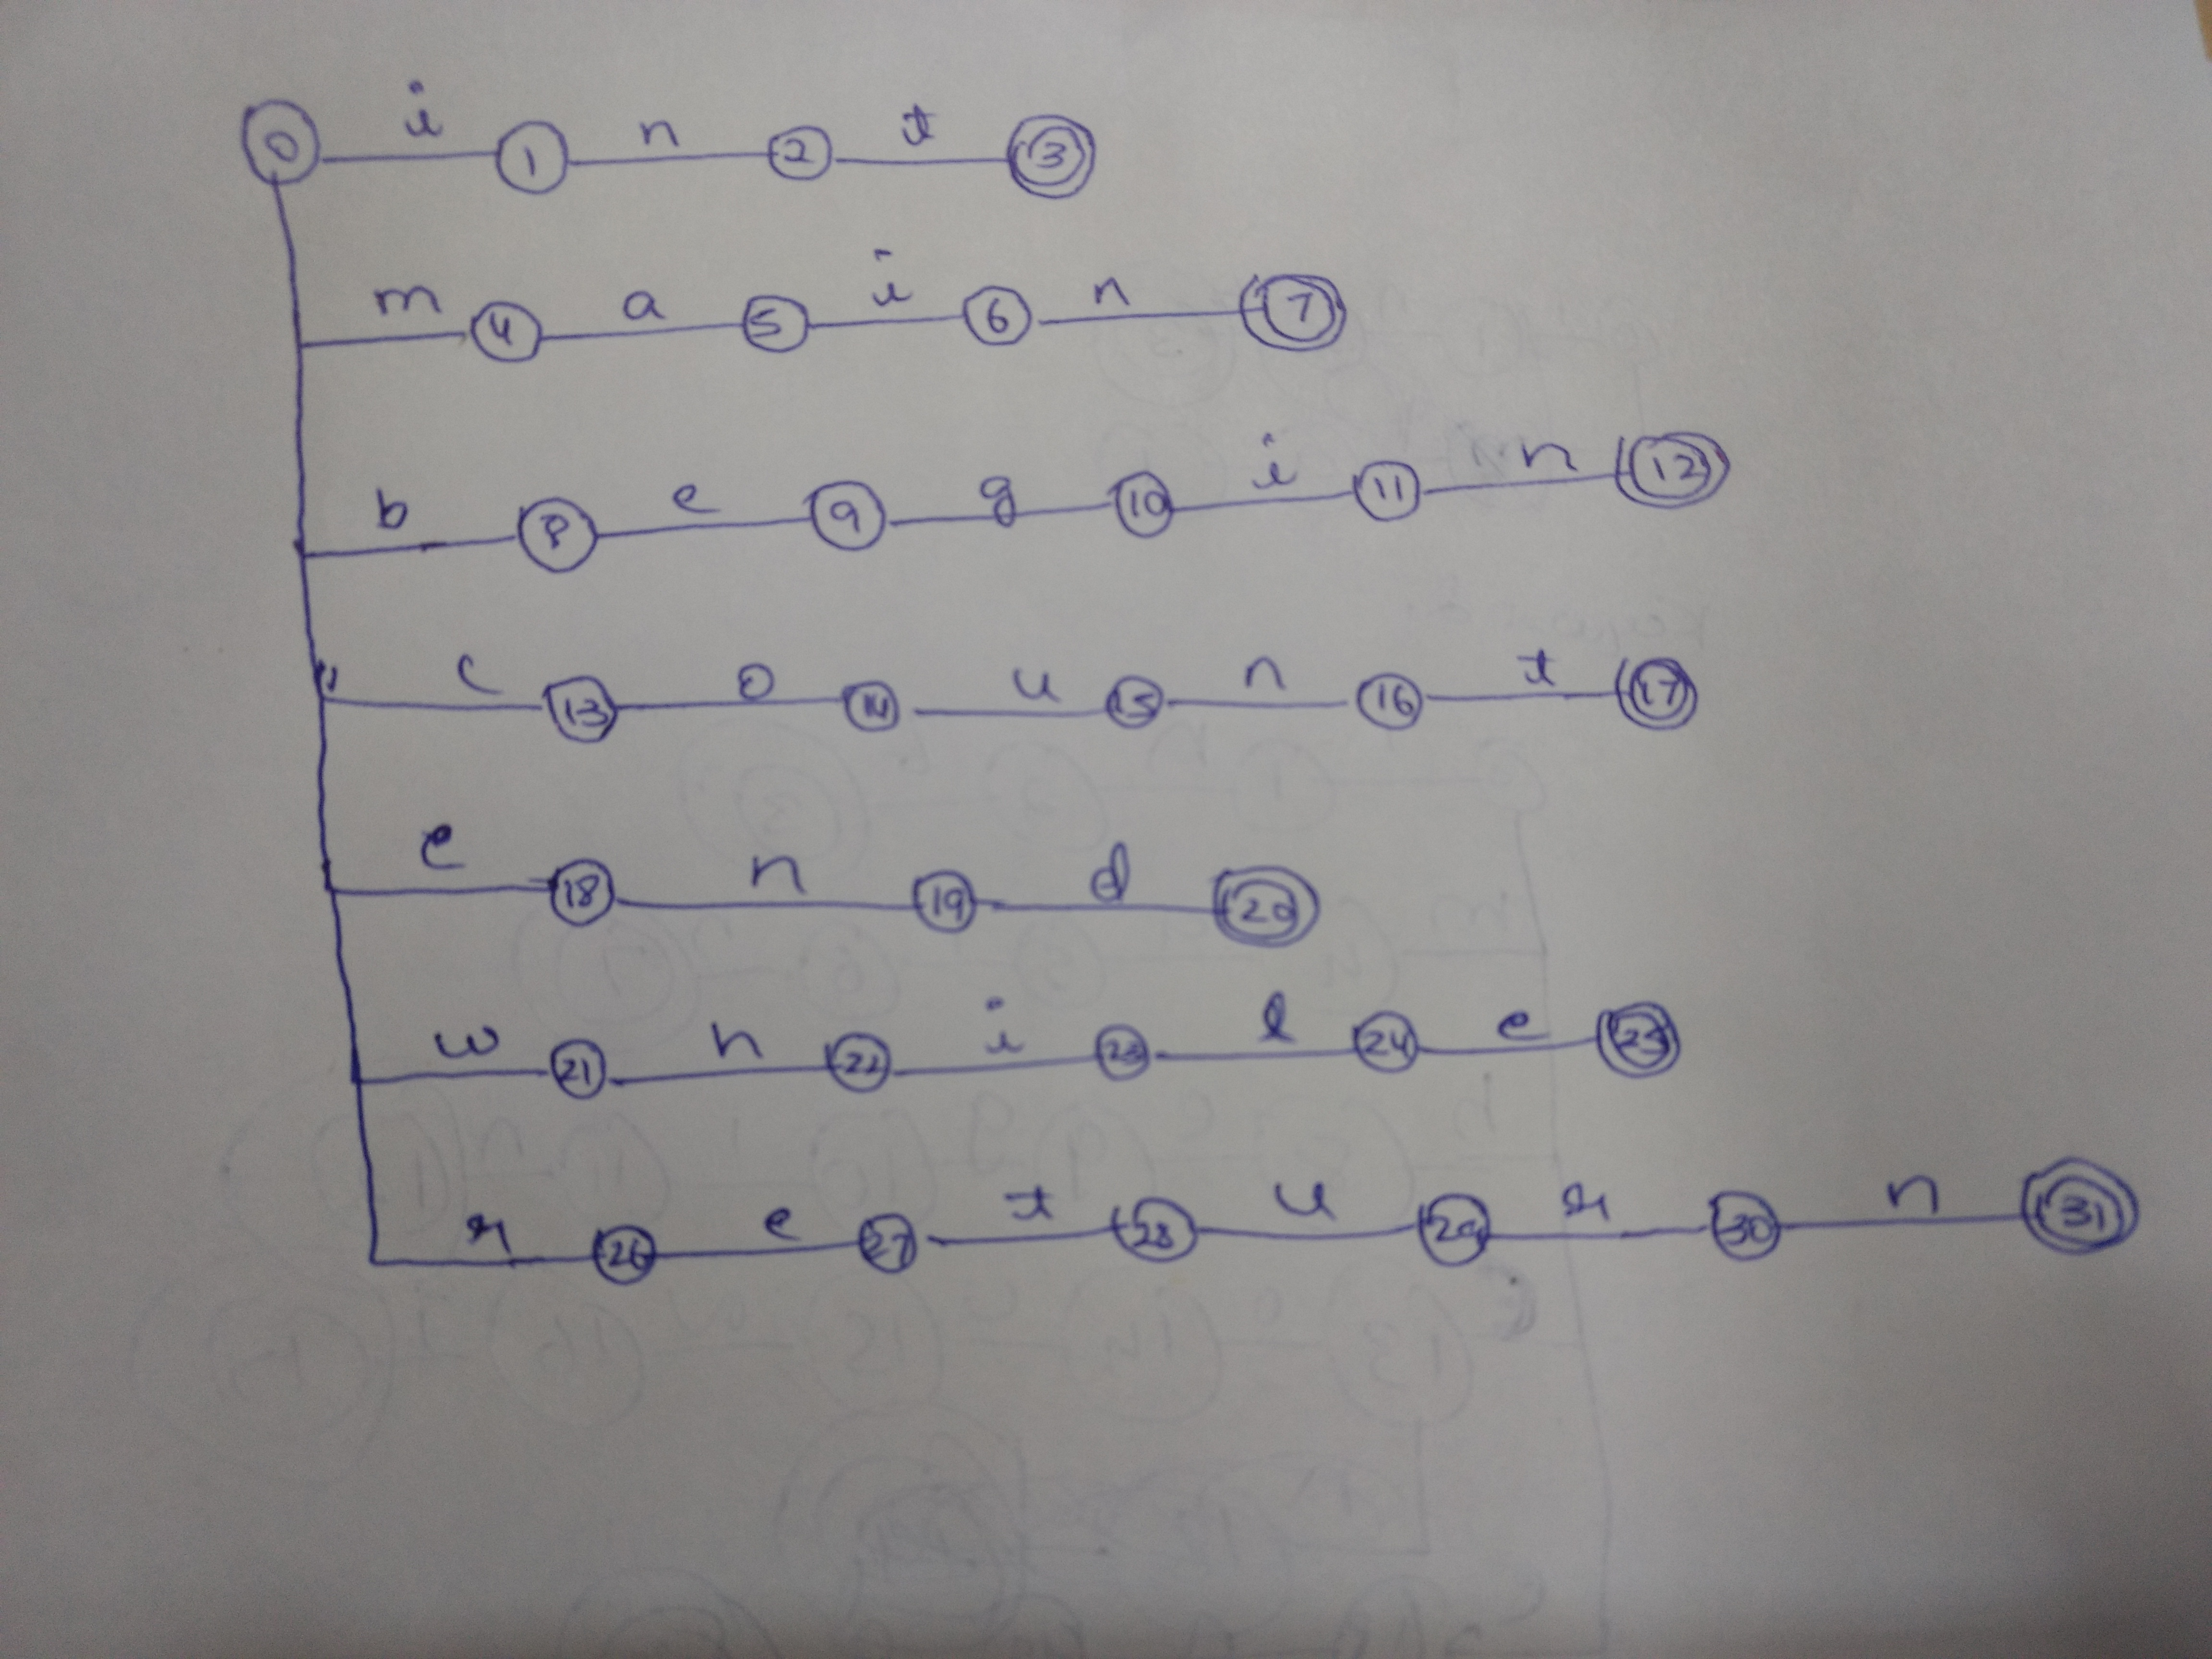 0 i 1 n 2 t 3
m 4 a 5 i 6 n 7
b 8 e 9 g 10 i 11 n 12
c 13 o 14 u 15 n 16 t 17
e 18 n 19 d 20
w 21 h 22 i 23 l 24 e 25
r 26 e 27 t 28 u 29 r 30 n 31